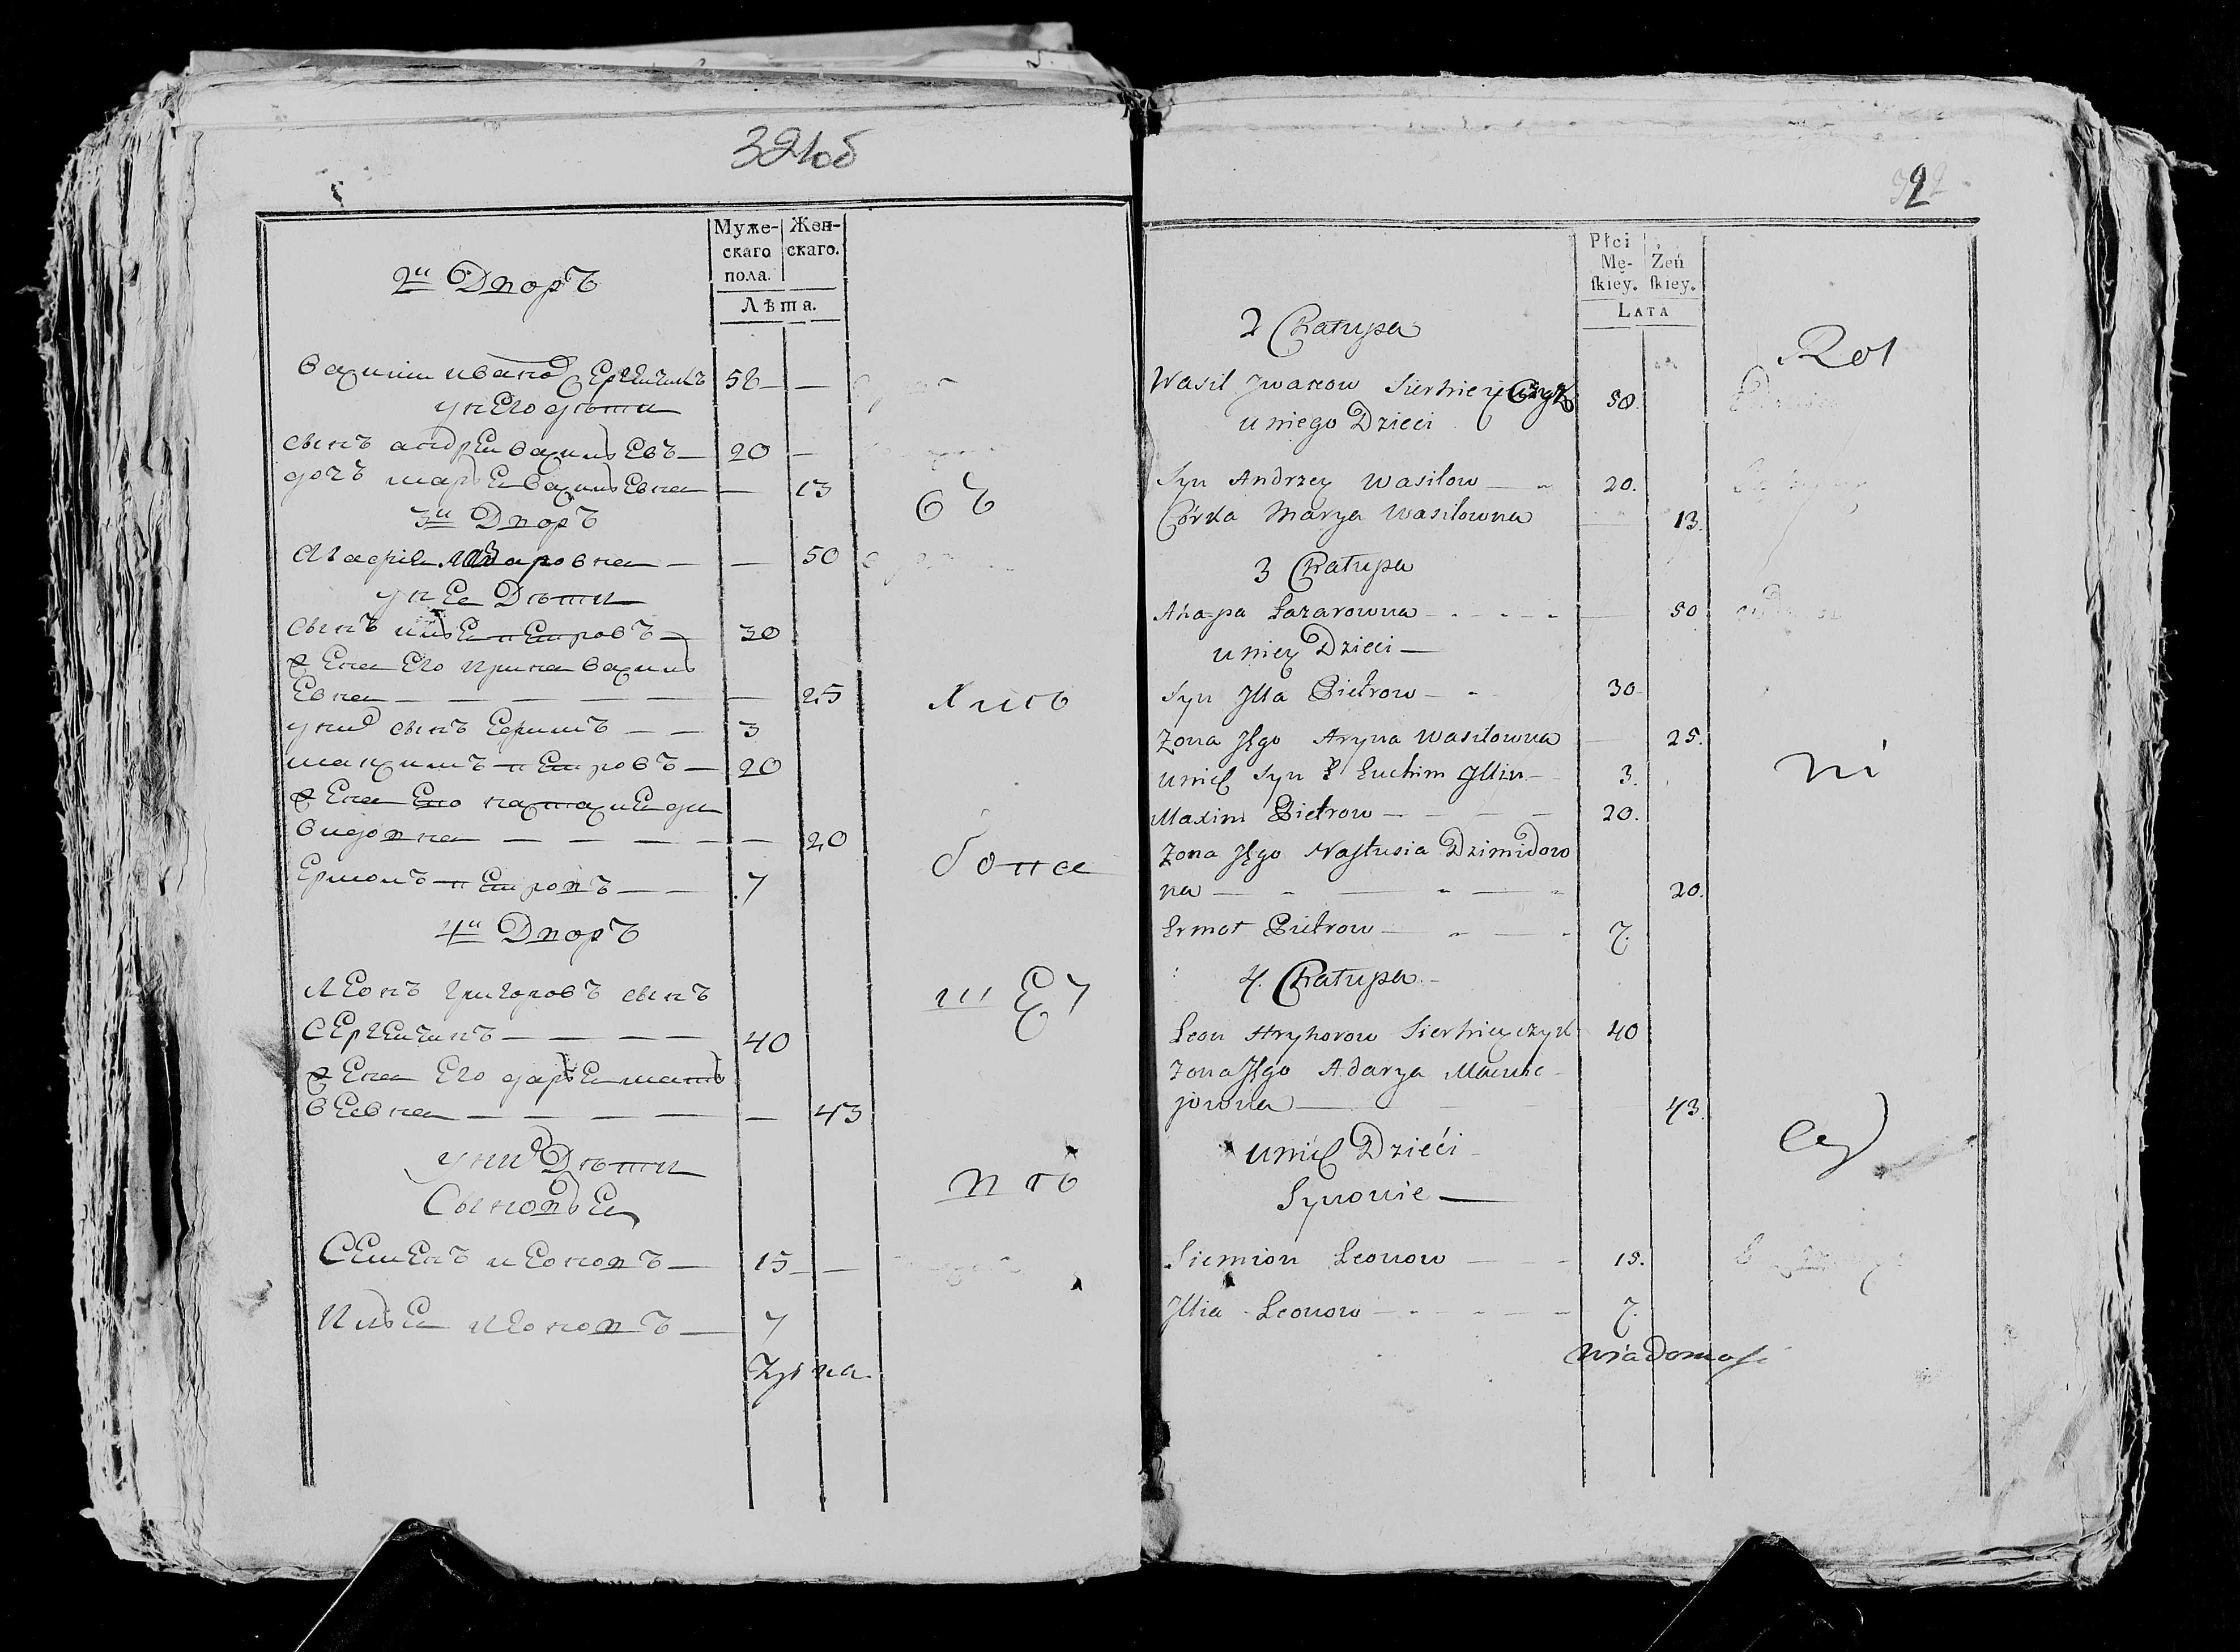 321об
Муже-
скаго
пола.
Жен-
скаго.
Лѣта.
2й Дворъ
Василий Иванов Сергейчикъ 58 —
у него дѣти
сынъ андрей василь евъ — 20 —
дочъ марья Васильевна — 13
3й Дворъ
Агафия Лазаровна — — 50
у нее Дѣти
сынъ илья петровъ — 30
жена Его ирина василь
Евна — — — — — 25
у них сынъ Ефимъ — — 3
максимъ петровъ — 20
жена Его настасия де
видовна — — — — — 20
Ермолъ петровъ — — 7
4й Дворъ
Леонъ григоровъ сынъ
Сергейчикъ — — — — 40
жена Его дарья мать
веевна — — — — — 43
у них Дѣти
Сыновья
Семенъ леоновъ — 15 —
Илья леоновъ — 7
Żył na
322
Płci
Mę-
ſkiey.
Żeń
ſkiey.
LATA
2 Chałupa
Wasil Jwanow Sierhieyczyk 58.
u niego Dzieci
Syn Andrzey Wasilow — 20.
Córka Marya Wasilowna — 13.
3 Chałupa
Ahapa Łazarowna — 50
u niey Dzieci —
Syn Jlla Pietrow — 30
Żona Jego Aryna Wasilowna — 25.
u nich Syn Euchim Jllin — 3.
Maxim Pietrow — — — 20.
Żona Jego Nastusia Dzimidow
na — — — 20.
Ermoł Pietrow — — 7.
4. Chałupa —
Leon Hryhorow Sierhieyczyk 40
Żona Jego Adarya
43.
u nich Dzieći
Synowie —
Siemion Leonow — — 15.
Jllia Leonow — — — 7.
wiadomość